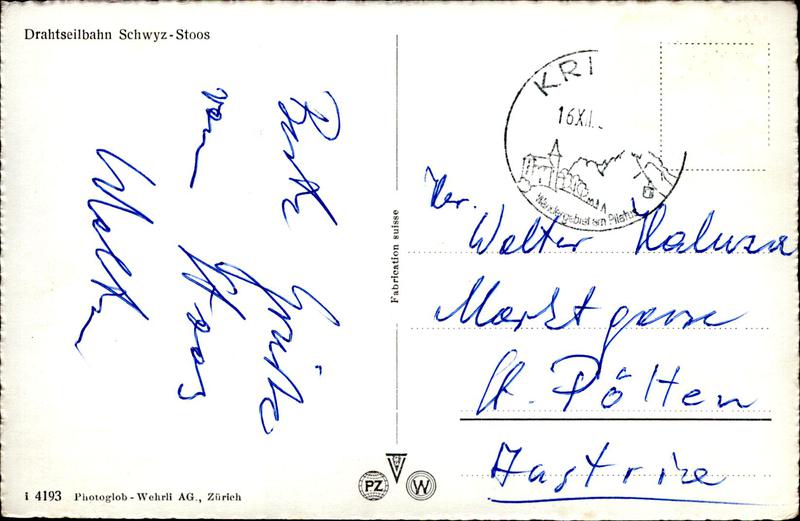 Drahtseilbahn Schwyz-Stoos
Beste Grüße
vom Stoos
Walter
Fabrication suisse
KRI
16.XI.
Wandergebiet am Pilatus
Her.
Walter Haluza
Marktgasse
St. Pölten
Austria
i 4193 Photoglob-Wehrli AG., Zürich
PZ
W